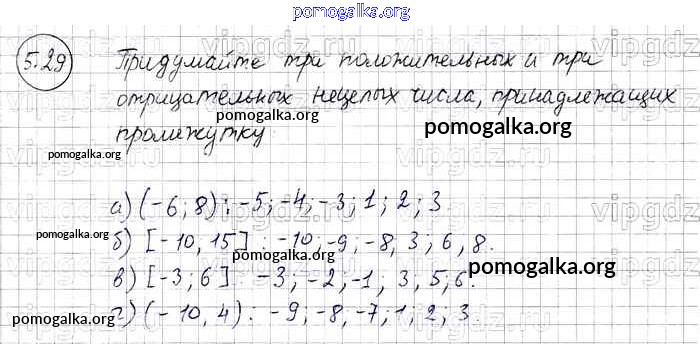 pomogalka.org
5.29 Придумайте три положительных и три
отрицательных нецелых числа, принадлежащих
pomogalka.org
промежутку
pomogalka.org
pomogalka.org
а) (-6; 8) : -5; -4; -3; 1; 2; 3.
pomogalka.org
б) [-10, 15] : -10; -9; -8, 3; 6, 8.
pomogalka.org
в) [-3; 6] : -3; -2; -1; 3, 5; 6.
г) (-10, 4) : -9; -8, -7; 1; 2; 3.
pomogalka.org
pomogalka.org